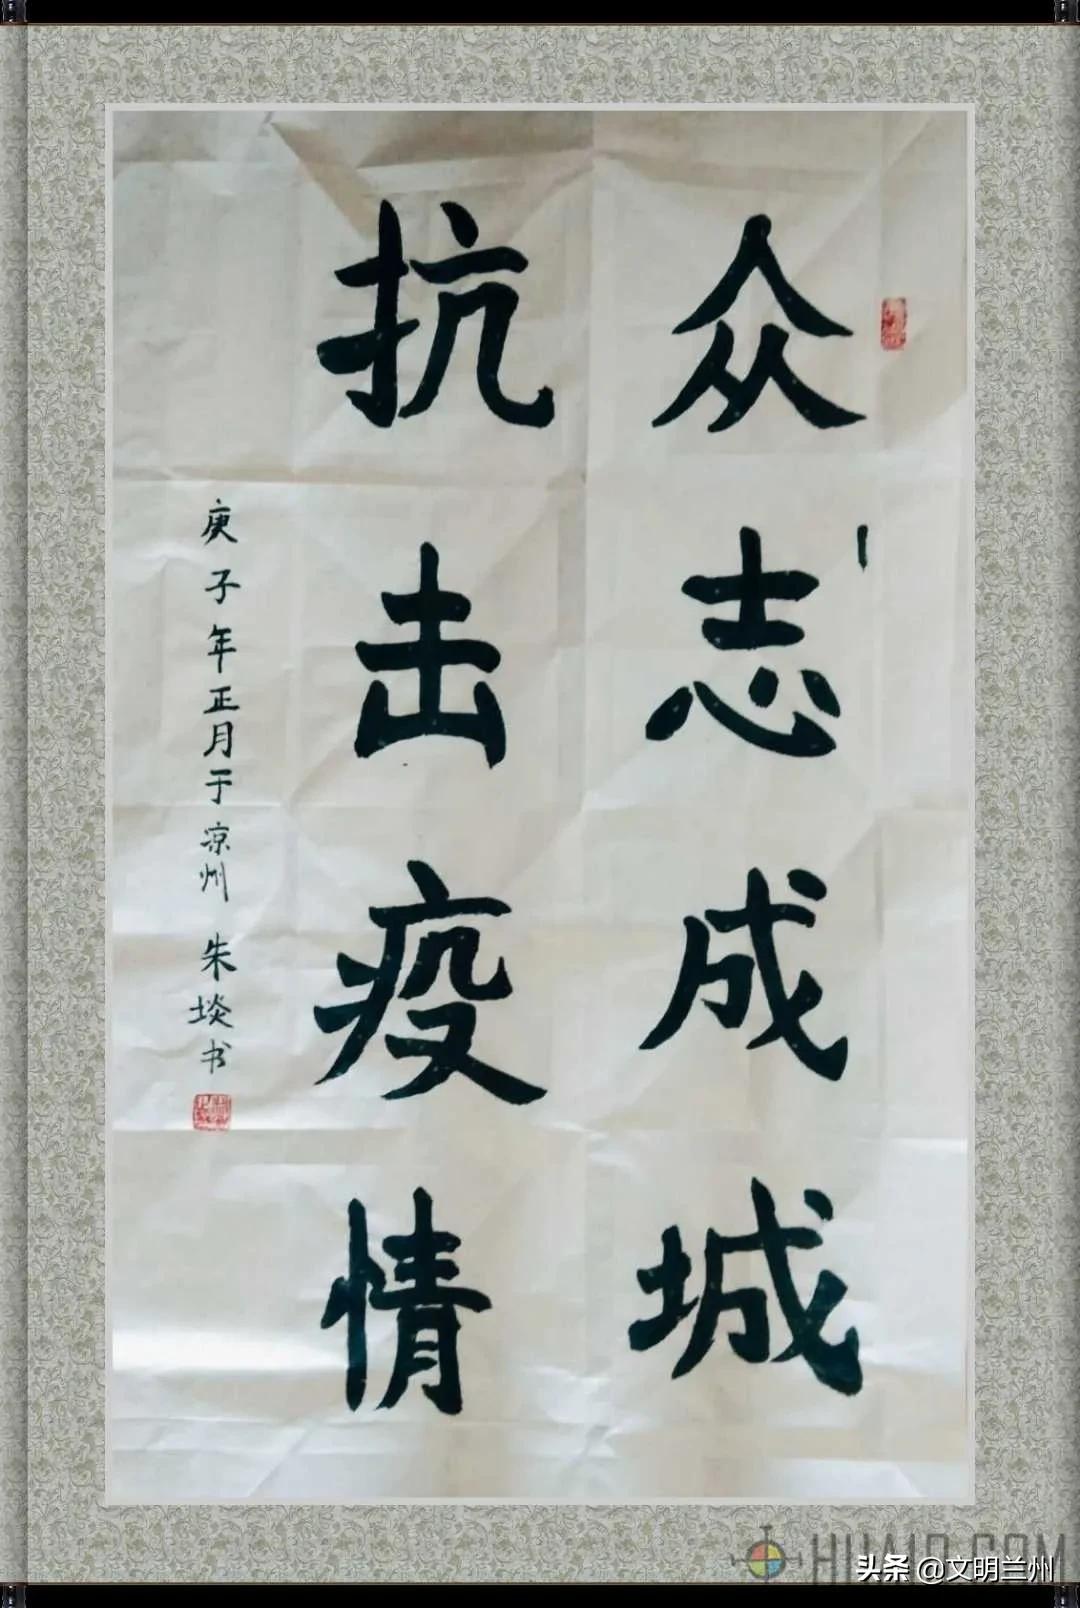 众志成城
抗击疫情
庚子年正月于凉州 朱埮书
头条 @文明兰州